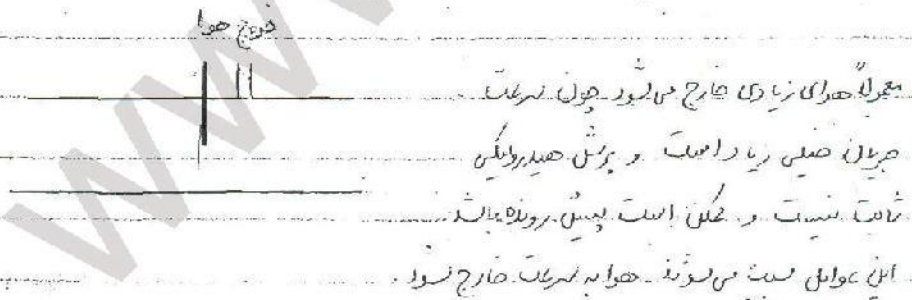 خروج هوا
معمولاً هوای زیادی خارج می شود چون سرعت
جریان خیلی زیاد است و پرش هیدرولیکی
ثابت نیست و ممکن است پیش رونده باشد
این عوامل سبب می شوند هوا به سرعت خارج شود.
WWW